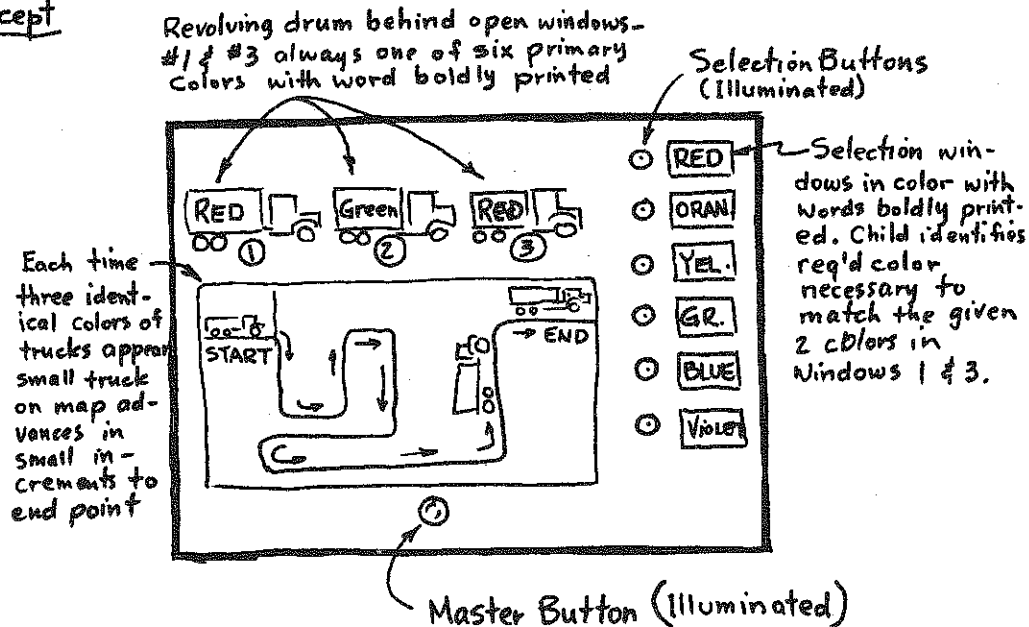 cept
Revolving drum behind open windows-
#1 & #3 always one of six primary
colors with word boldly printed
Selection Buttons
(Illuminated)
RED
Green
RED
1
2
3
RED
ORAN.
YEL.
GR.
BLUE
Violet
Selection win-
dows in color with
words boldly print-
ed. Child identifies
req'd color
necessary to
match the given
2 colors in
Windows 1 & 3.
Each time
three ident-
ical colors of
trucks appear
small truck
on map ad-
vances in
small in-
crements to
end point
START
END
Master Button (Illuminated)